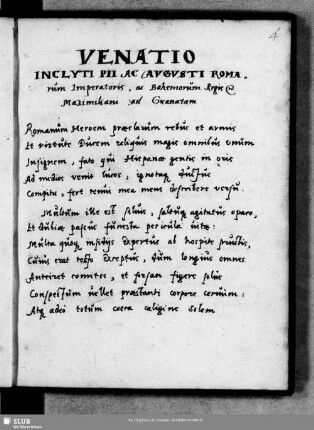 VENATIO
INCLYTI PII AC AVGVSTI ROMA-
rum Imperatoris, ac Bohemorum Regis
Maximiliani ad Granatam
Romanum Heroem praeclarum rebus et armis
Et virtute Ducem reliquis magis omnibus unum
Insignem, fato qui Hispanae gentis in oris
Ad medios venit lucos, ignotaque
fert tenui mea mens describere versu.
Multum ille est siluis, saltuque agitatus opaco,
Et dubiae passus funesta pericula uitae:
Multa quoque insidijs expertus ab hospite
Cuius erat tecto deceptus, dum longius omnes
Anteiret comites, et forsan figere solus
Conspectum uellet praestanti corpore ceruum:
Atque adeo totum caeca caligine solem
SLUB
Wir führen Wissen.